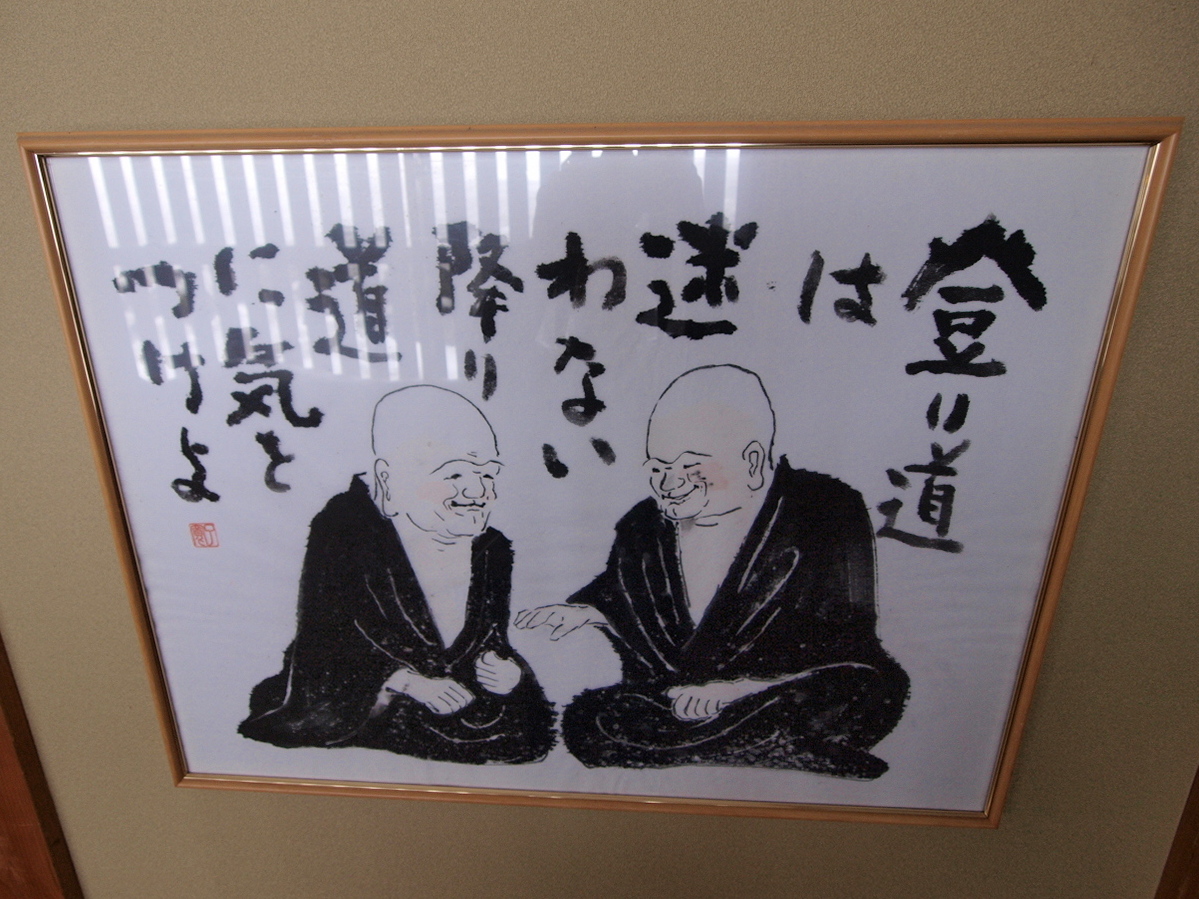 登り道
は
迷
わない
降り
道
に気を
つけよ